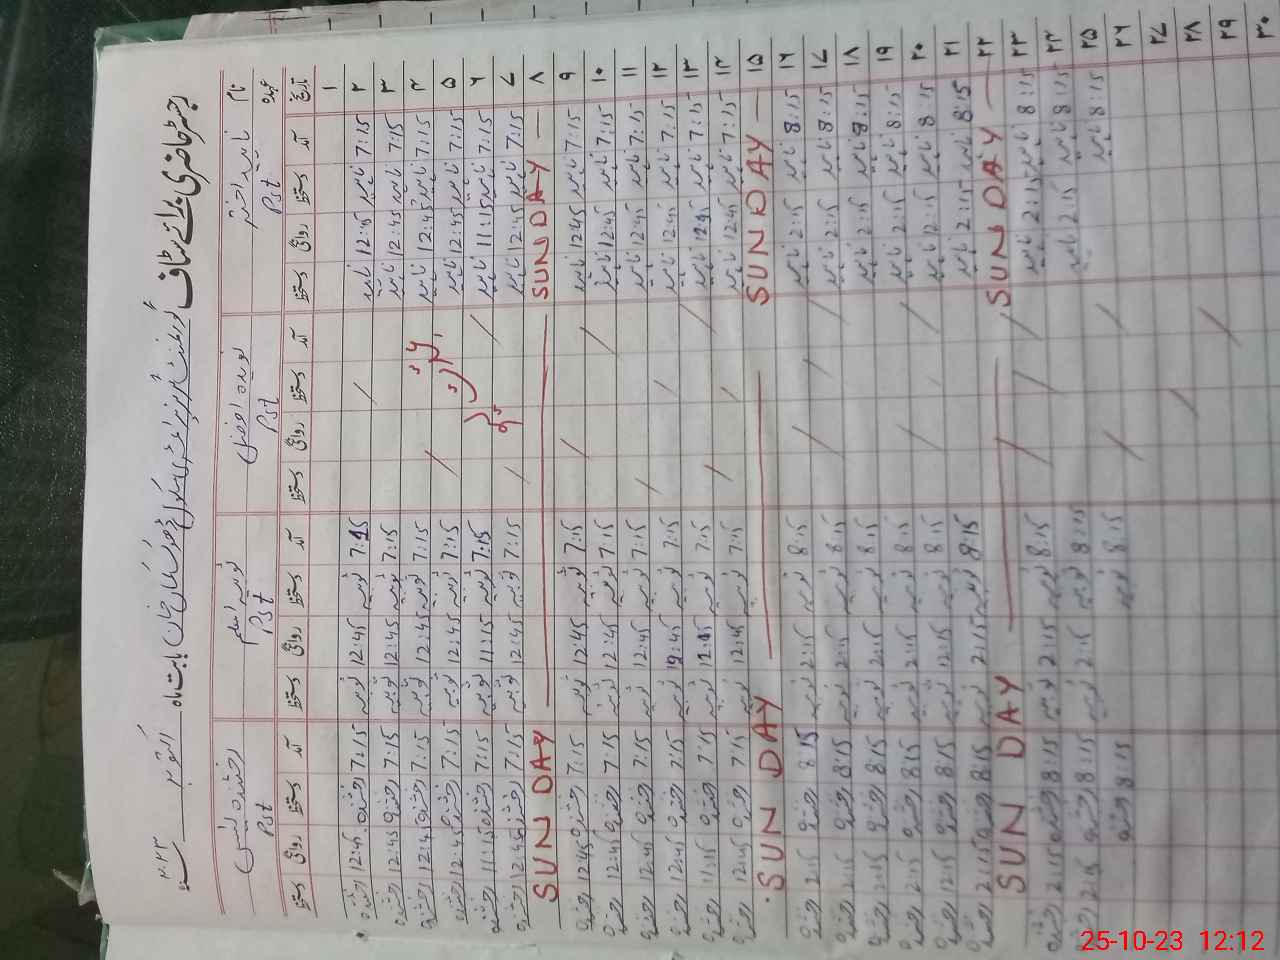 رجسٹر حاضری برائے سٹاف گورنمنٹ گرلز پرائمری سکول خان بابت ماہ اکتوبر سنہ ۲۰۲۳
نام ناہید اختر نویدہ افضل ثوبیہ اسلم رخشندہ
عہدہ Pst Pst Pst Pst
تاریخ آمد دستخط روانگی دستخط آمد دستخط روانگی دستخط آمد دستخط روانگی دستخط آمد دستخط روانگی دستخط
۱
۲ 7:15 ناہید 12:45 ناہید 7:15 ثوبیہ 12:45 ثوبیہ 7:15 رخشندہ 12:45 رخشندہ
۳ 7:15 ناہید 12:45 ناہید 7:15 ثوبیہ 12:45 ثوبیہ 7:15 رخشندہ 12:45 رخشندہ
۴ 7:15 ناہید 12:45 ناہید 7:15 ثوبیہ 12:45 ثوبیہ 7:15 رخشندہ 12:45 رخشندہ
۵ 7:15 ناہید 12:45 ناہید 7:15 ثوبیہ 12:45 ثوبیہ 7:15 رخشندہ 12:45 رخشندہ
۶ 7:15 ناہید 11:15 ناہید 7:15 ثوبیہ 11:15 ثوبیہ 7:15 رخشندہ 11:15 رخشندہ
۷ 7:15 ناہید 12:45 ناہید 7:15 ثوبیہ 12:45 ثوبیہ 7:15 رخشندہ 12:45 رخشندہ
۸ SUNDAY SUN DAY
۹ 7:15 ناہید 12:45 ناہید 7:15 ثوبیہ 12:45 ثوبیہ 7:15 رخشندہ 12:45 رخشندہ
۱۰ 7:15 ناہید 12:45 ناہید 7:15 ثوبیہ 12:45 ثوبیہ 7:15 رخشندہ 12:45 رخشندہ
۱۱ 7:15 ناہید 12:45 ناہید 7:15 ثوبیہ 12:45 ثوبیہ 7:15 رخشندہ 12:45 رخشندہ
۱۲ 7:15 ناہید 12:45 ناہید 7:15 ثوبیہ 12:45 ثوبیہ 7:15 رخشندہ 12:45 رخشندہ
۱۳ 7:15 ناہید ناہید 7:15 ثوبیہ ثوبیہ 7:15 رخشندہ 11:15 رخشندہ
۱۴ 7:15 ناہید 12:45 ناہید 7:15 ثوبیہ 12:45 ثوبیہ 7:15 رخشندہ 12:45 رخشندہ
۱۵ SUNDAY SUN DAY
۱۶ 8:15 ناہید 2:15 ناہید 8:15 ثوبیہ 2:15 ثوبیہ 8:15 رخشندہ 2:15 رخشندہ
۱۷ 8:15 ناہید 2:15 ناہید 8:15 ثوبیہ 2:15 ثوبیہ 8:15 رخشندہ 2:15 رخشندہ
۱۸ 8:15 ناہید 2:15 ناہید 8:15 ثوبیہ 2:15 ثوبیہ 8:15 رخشندہ 2:15 رخشندہ
۱۹ 8:15 ناہید 2:15 ناہید 8:15 ثوبیہ 2:15 ثوبیہ 8:15 رخشندہ 2:15 رخشندہ
۲۰ 8:15 ناہید 12:15 ناہید 8:15 ثوبیہ 12:15 ثوبیہ 8:15 رخشندہ 12:15 رخشندہ
۲۱ 8:15 ناہید 2:15 ناہید 8:15 ثوبیہ 2:15 ثوبیہ 8:15 رخشندہ 2:15 رخشندہ
۲۲ SUN DAY SUN DAY
۲۳ 8:15 ناہید 2:15 ناہید 8:15 ثوبیہ 2:15 ثوبیہ 8:15 رخشندہ 2:15 رخشندہ
۲۴ 8:15 ناہید 2:15 ناہید 8:15 ثوبیہ 2:15 ثوبیہ 8:15 رخشندہ 2:15 رخشندہ
۲۵ 8:15 ناہید 8:15 ثوبیہ 8:15 رخشندہ
۲۶
۲۷
۲۸
۲۹
۳۰
25-10-23 12:12